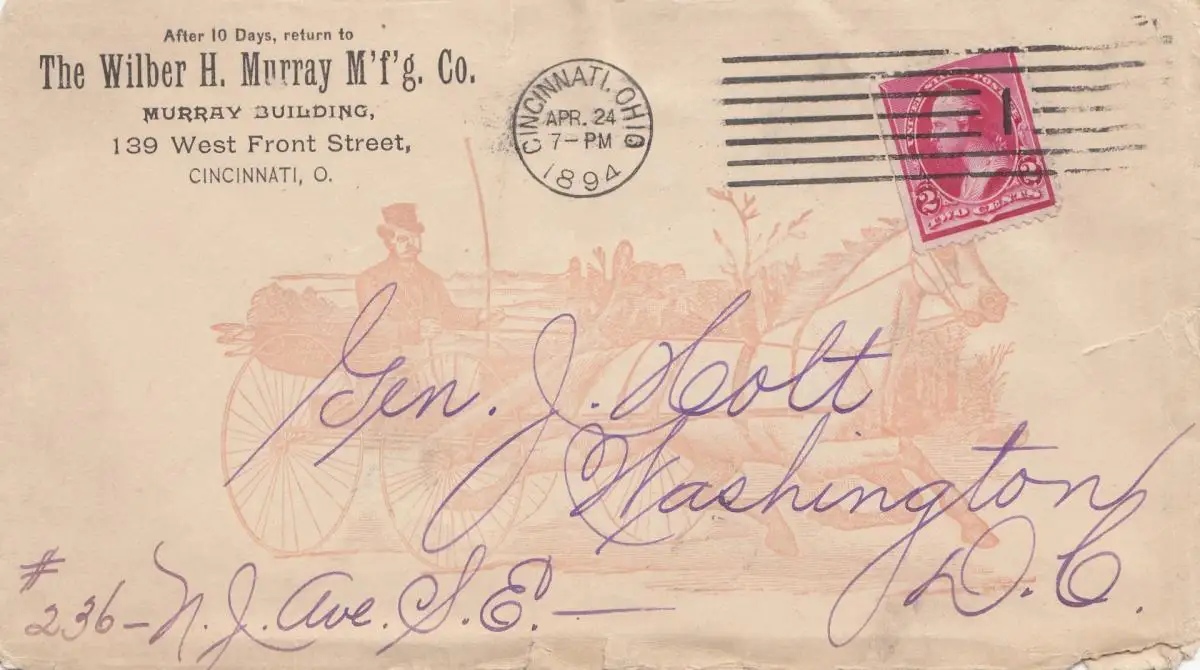 After 10 Days, return to
The Wilber H. Murray M'f'g. Co.
MURRAY BUILDING,
139 West Front Street,
CINCINNATI, O.
CINCINNATI, OHIO
APR. 24
7-PM
1894
1
2 2
TWO CENTS
Gen. J. Holt
Washington
D.C.
#
236-N.J. Ave. S.E.—